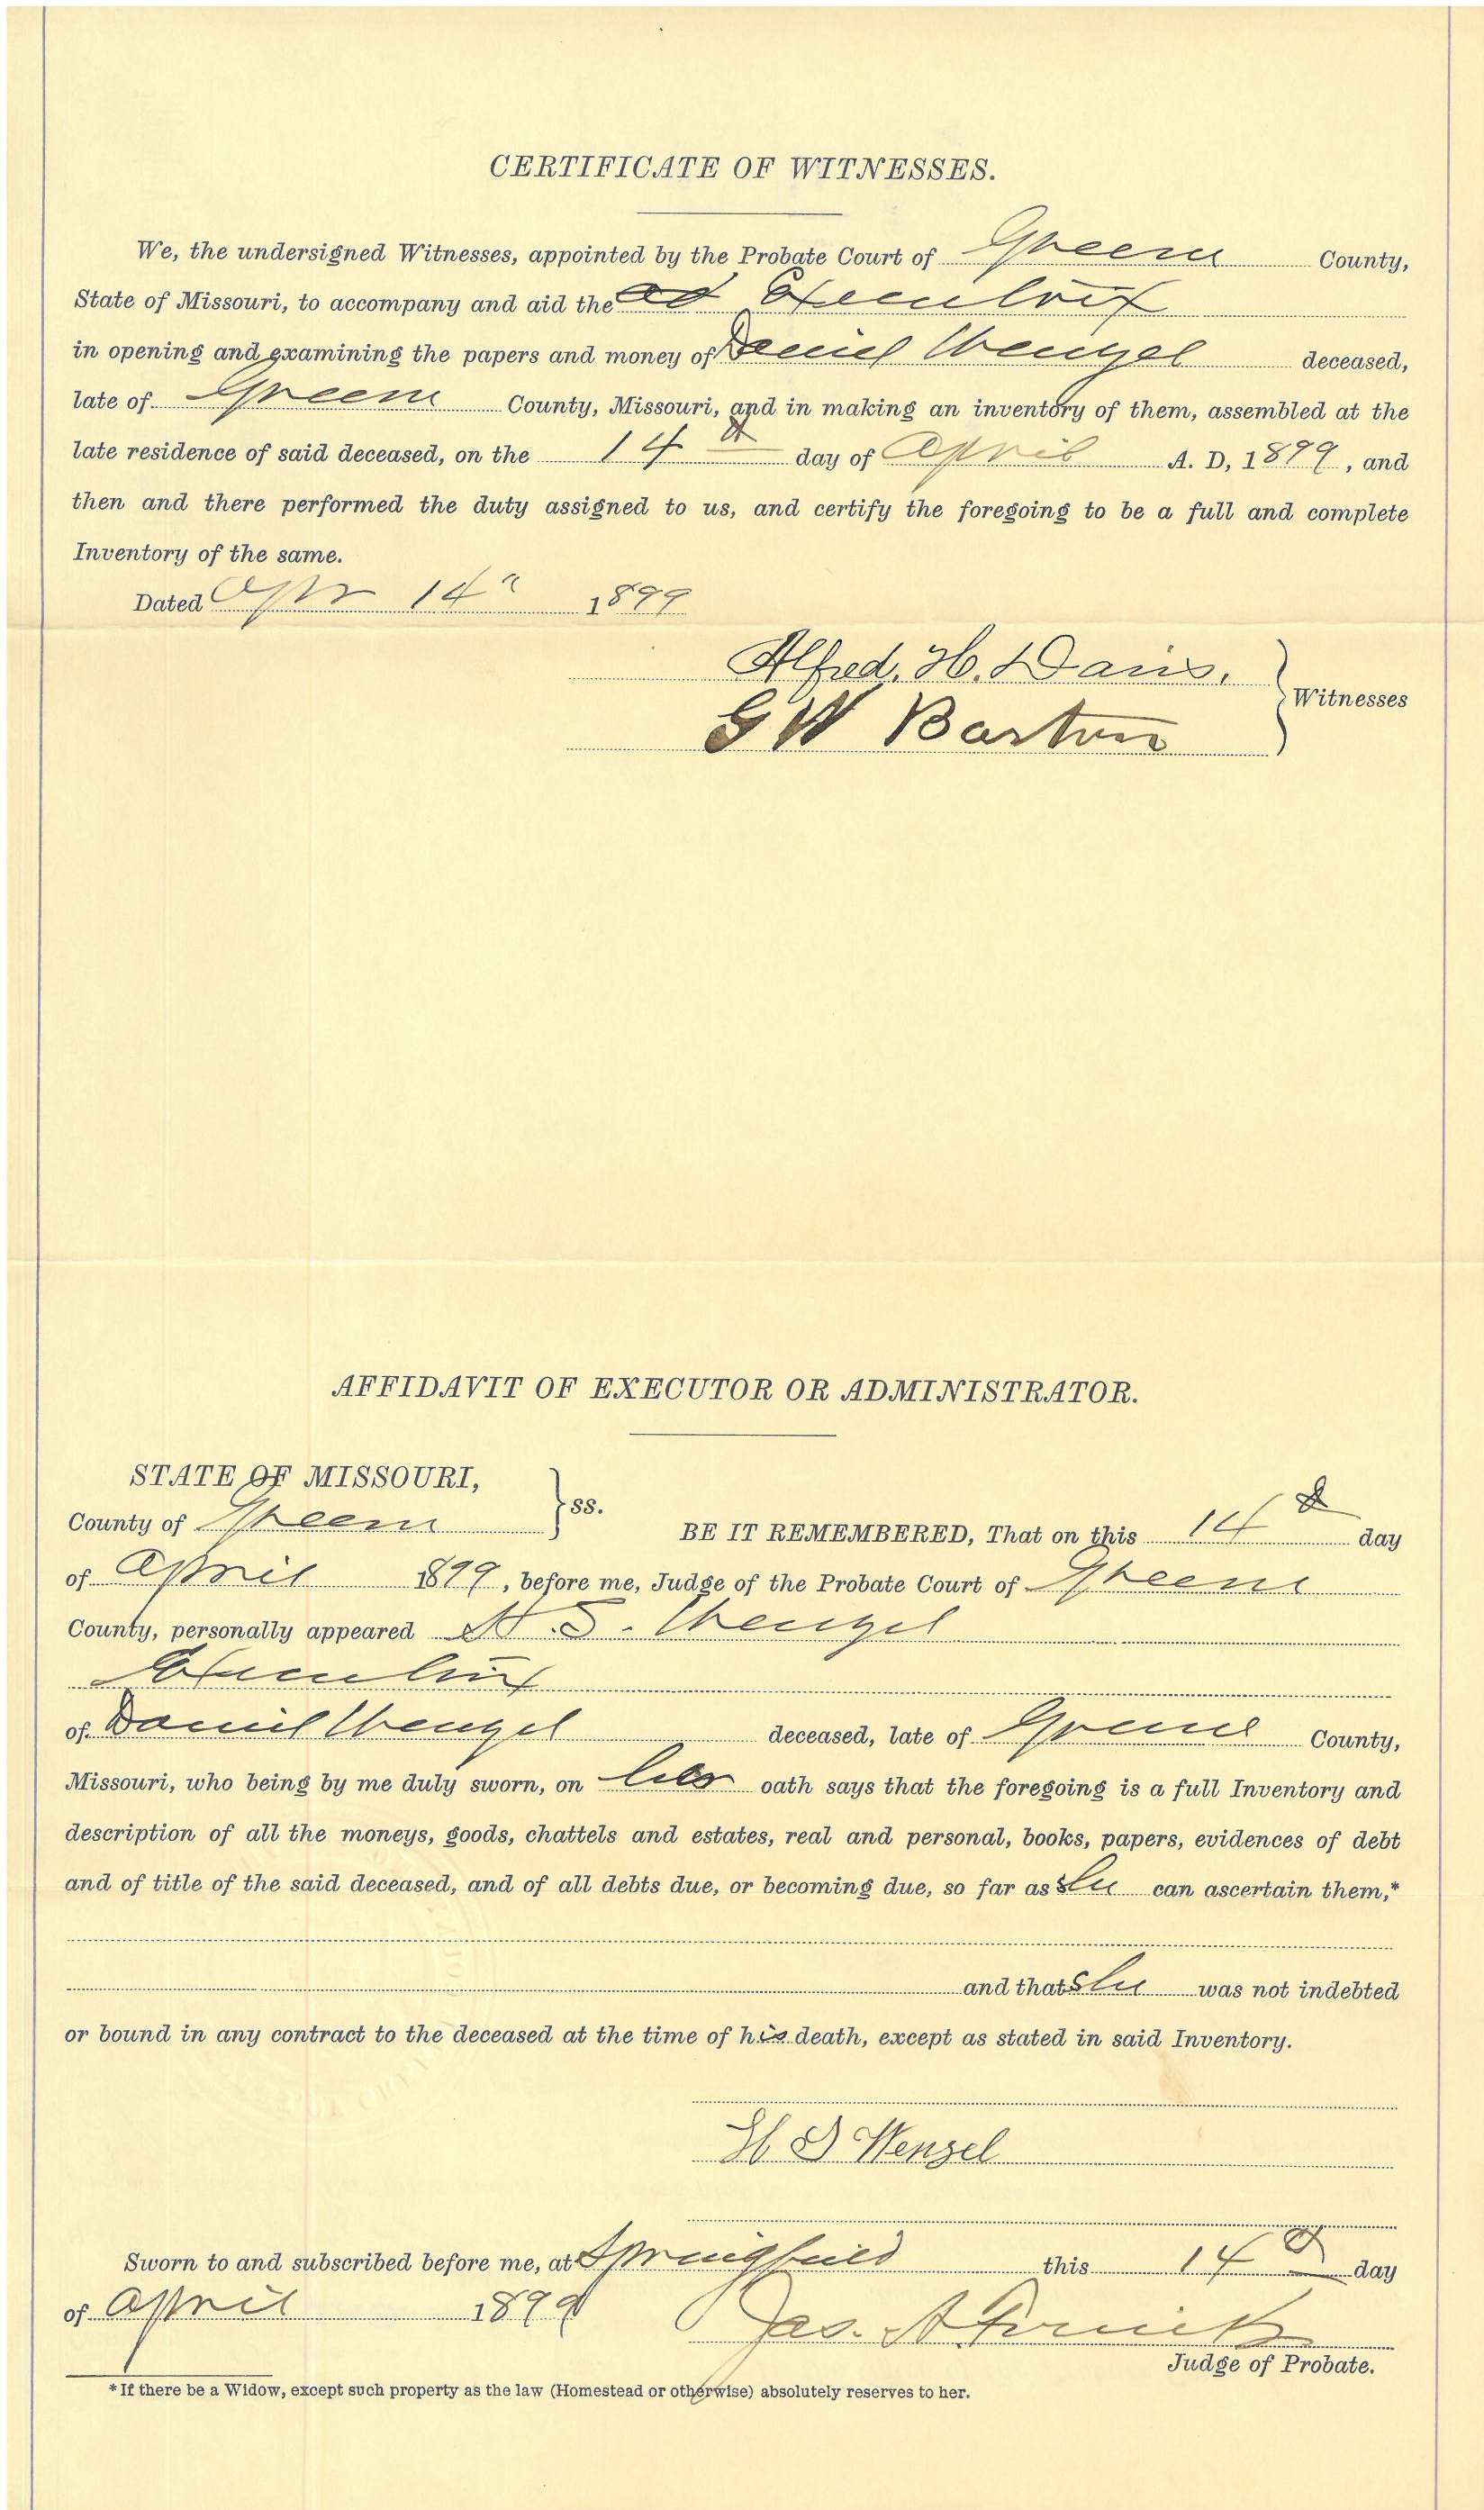 CERTIFICATE OF WITNESSES.
We, the undersigned Witnesses, appointed by the Probate Court of Greene County,
State of Missouri, to accompany and aid the ad Executrix
in opening and examining the papers and money of Daniel Wenzel deceased,
late of Greene County, Missouri, and in making an inventory of them, assembled at the
late residence of said deceased, on the 14th day of April A. D, 1899, and
then and there performed the duty assigned to us, and certify the foregoing to be a full and complete
Inventory of the same.
Dated Apr 14" 1899
Alfred. H. Davis.
G W Barton
Witnesses
AFFIDAVIT OF EXECUTOR OR ADMINISTRATOR.
STATE OF MISSOURI,
County of Greene ss.
BE IT REMEMBERED, That on this 14th day
of April 1899, before me, Judge of the Probate Court of Greene
County, personally appeared H. S. Wenzel
Executrix
of Daniel Wenzel deceased, late of Greene County,
Missouri, who being by me duly sworn, on her oath says that the foregoing is a full Inventory and
description of all the moneys, goods, chattels and estates, real and personal, books, papers, evidences of debt
and of title of the said deceased, and of all debts due, or becoming due, so far as she can ascertain them,*
and that she was not indebted
or bound in any contract to the deceased at the time of his death, except as stated in said Inventory.
H S Wenzel
Sworn to and subscribed before me, at Springfield this 14th day
of April 1899
Jas. A.
Judge of Probate.
* If there be a Widow, except such property as the law (Homestead or otherwise) absolutely reserves to her.